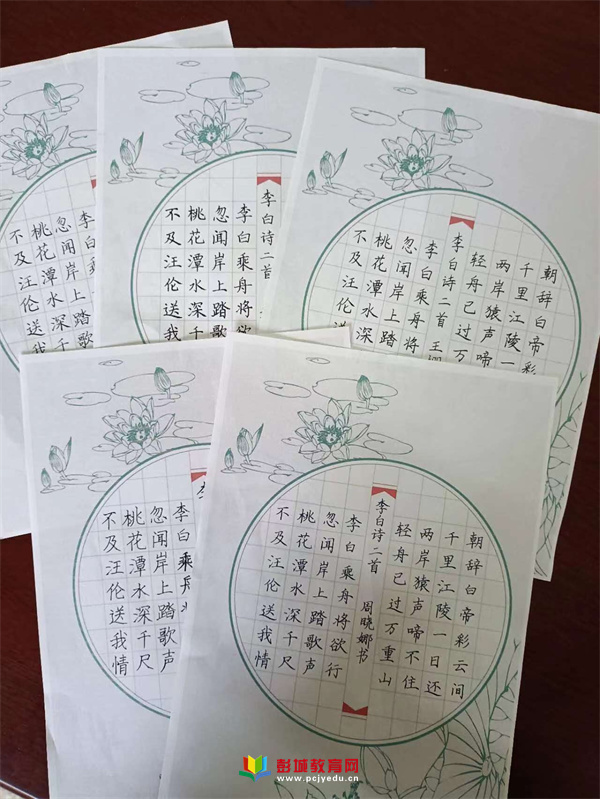 李白乘
忽闻岸上踏歌
桃花潭水深千
不及汪伦送我
李白诗二首
李白乘舟将欲
忽闻岸上踏歌
桃花潭水深千
不及汪伦送我
朝辞白帝彩
千里江陵一
两岸猿声啼
轻舟已过万
李白诗二首 王
李白乘舟将
忽闻岸上踏
桃花潭水深
不及汪伦送
李白乘
忽闻岸上踏歌声
桃花潭水深千尺
不及汪伦送我情
朝辞白帝彩云间
千里江陵一日还
两岸猿声啼不住
轻舟已过万重山
李白诗二首 周晓娜书
李白乘舟将欲行
忽闻岸上踏歌声
桃花潭水深千尺
不及汪伦送我情
彭城教育网
www.pcjyedu.cn